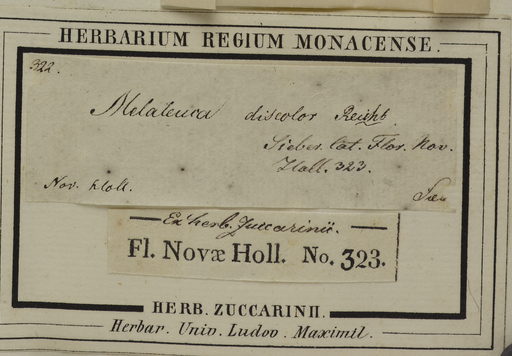 HERBARIUM REGIUM MONACENSE.
322.
Melaleuca discolor Reichb.
Sieber. Cat. Flor. Nov.
Holl. 323.
Nov. Holl.
Ex herb. Zuccarinii.
Fl. Novæ Holl. No. 323.
HERB. ZUCCARINII.
Herbar. Univ. Ludov. Maximil.